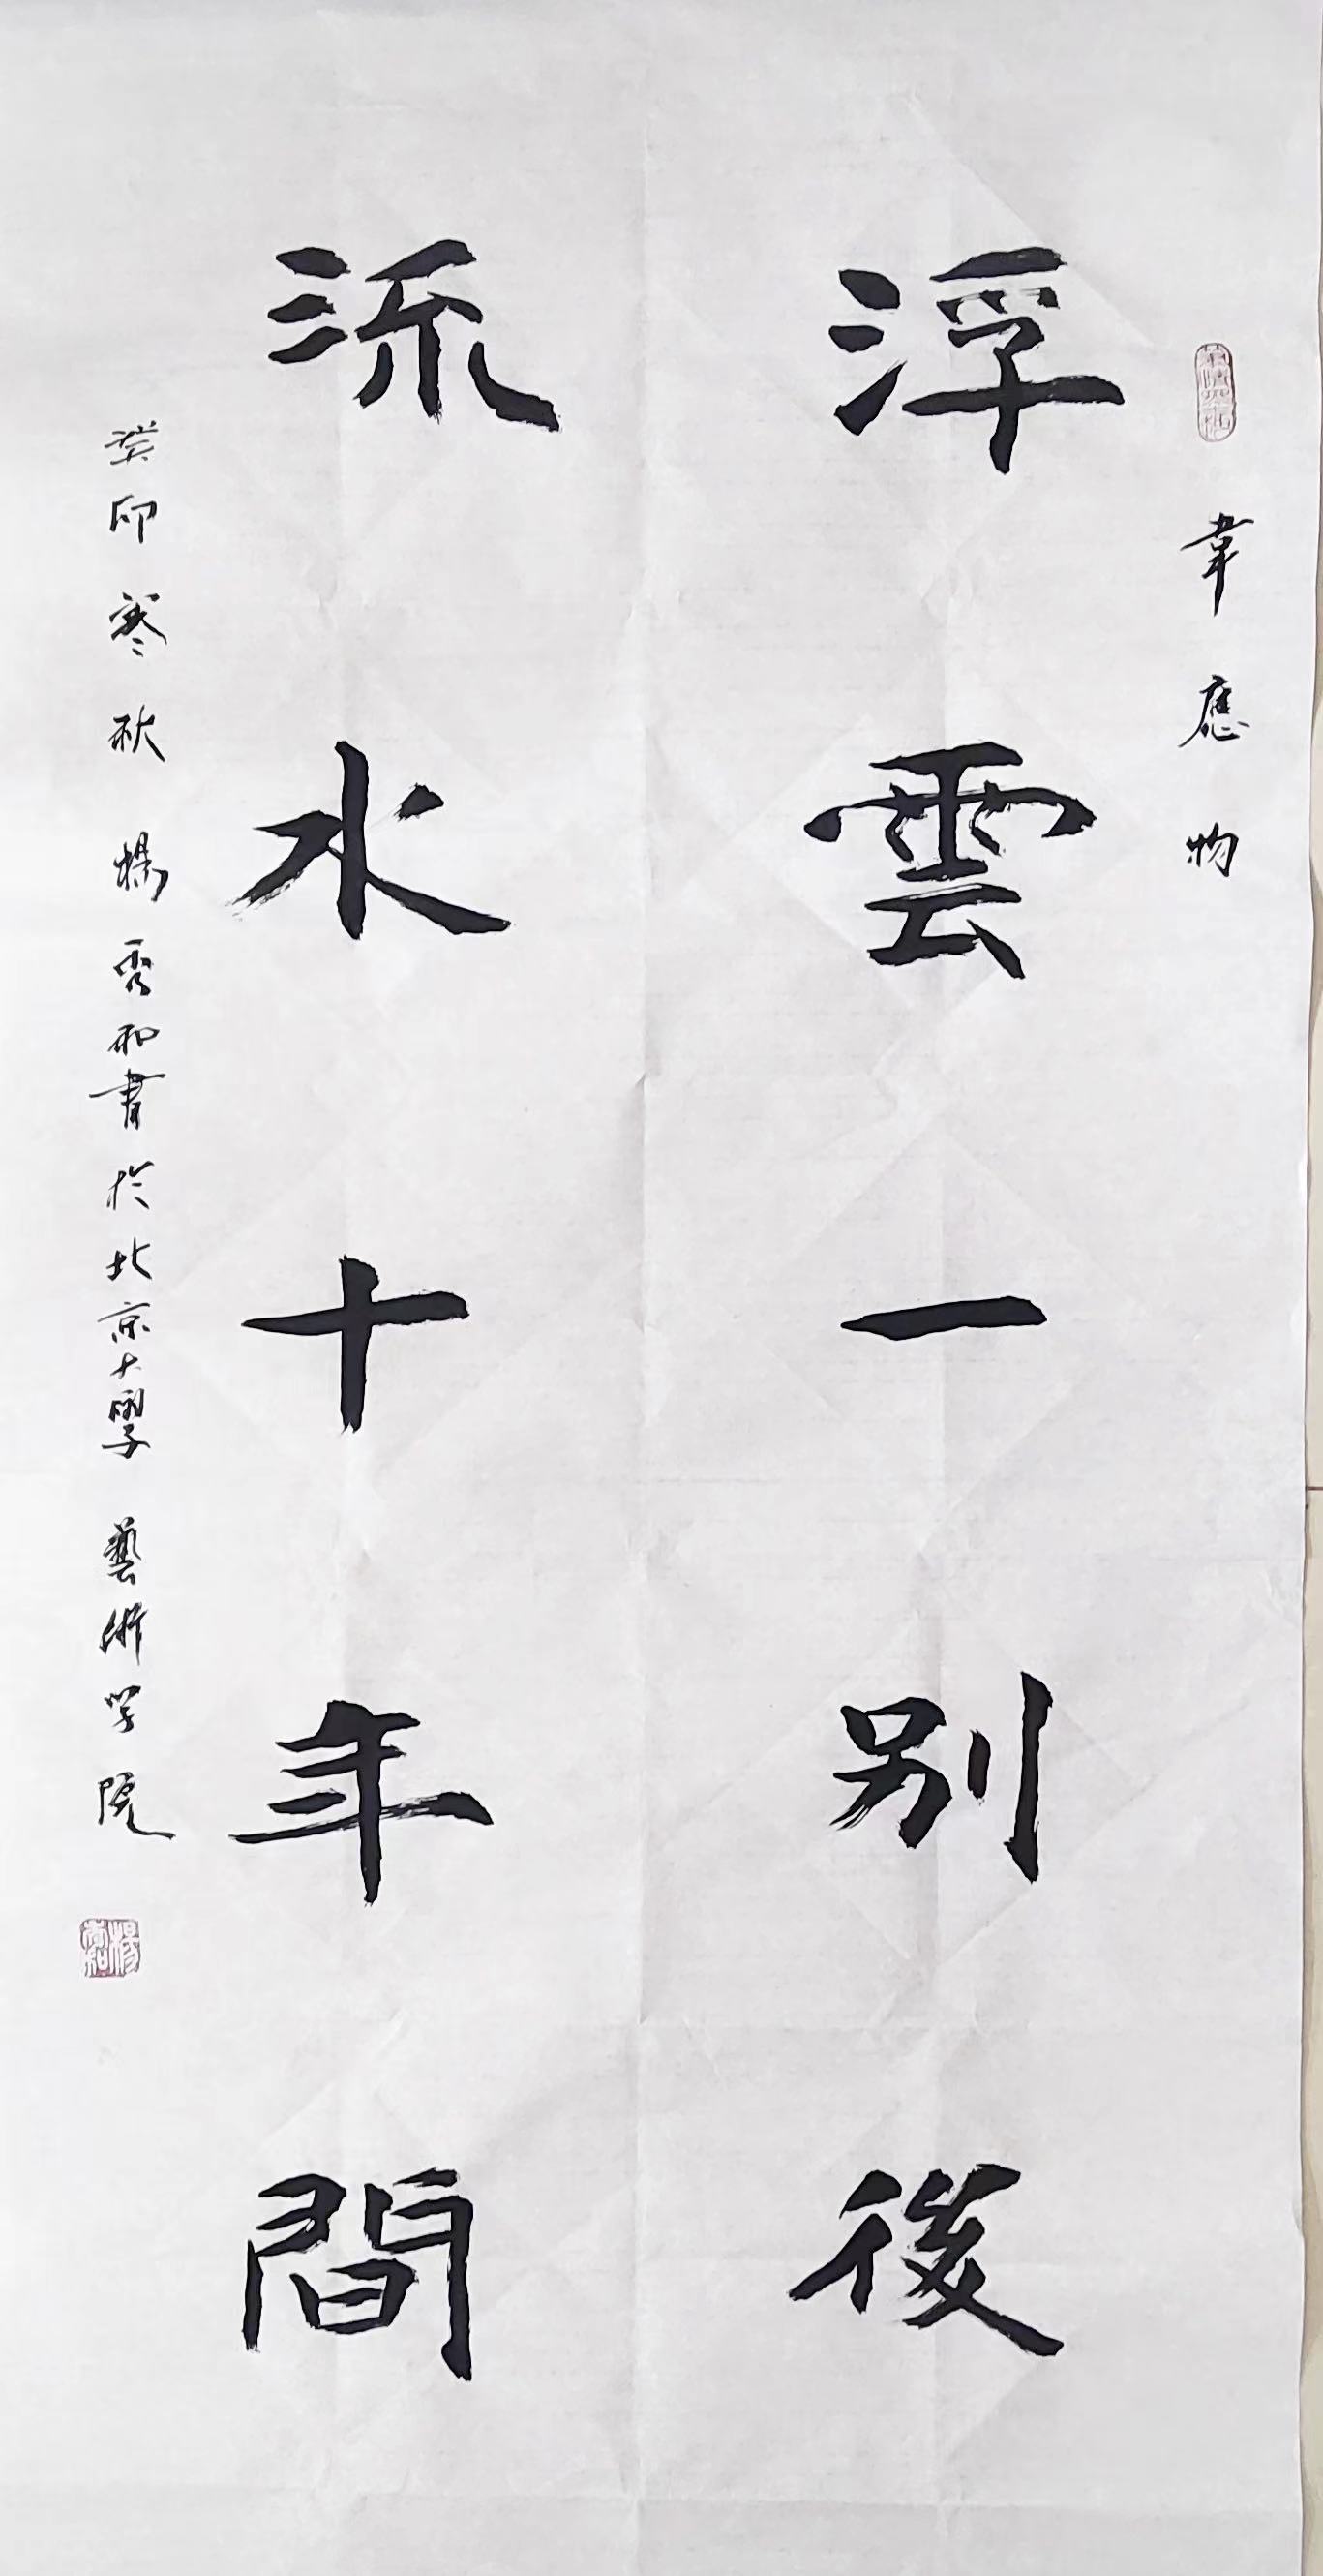 韋應物
浮雲一别後
流水十年間
癸卯寒秋 楊秀和書於北京大學 藝術学院